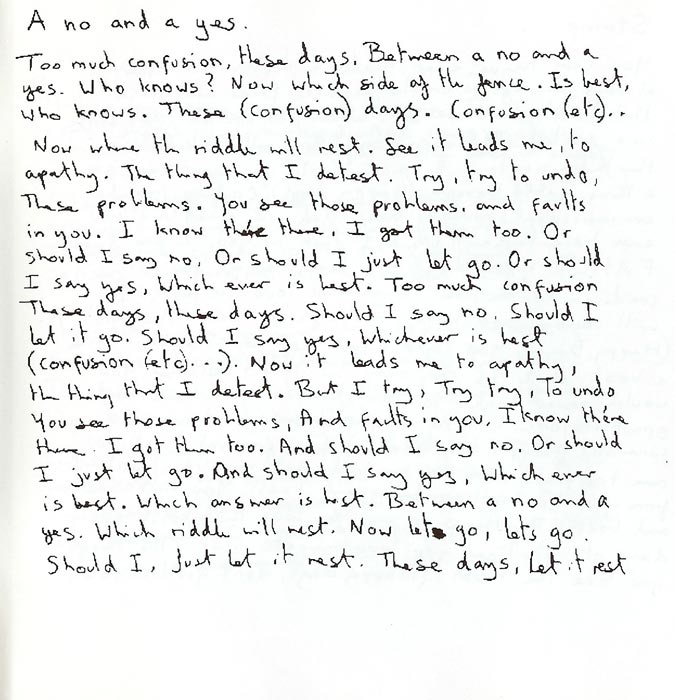 A no and a yes.
Too much confusion, these days, Between a no and a
yes. Who knows? Now which side of the fence. Is best,
who knows. These (confusion) days. Confusion (etc)..
Now where the riddle will rest. See it leads me, to
apathy. The thing that I detest. Try, try to undo,
These problems. You see those problems, and faults
in you. I know there, I got them too. Or
should I say no, Or should I just let go. Or should
I say yes, Which ever is best. Too much confusion
These days, these days. Should I say no. Should I
let it go. Should I say yes, Whichever is best
(confusion (etc)...). Now it leads me to apathy,
the thing that I detest. But I try, Try try, To undo
You see those problems, And faults in you, I know there
there. I got them too. And should I say no, Or should
I just let go. And should I say yes, Which ever
is best. Which answer is best. Between a no and a
yes. Which riddle will rest. Now lets go, lets go.
Should I, Just let it rest. These days, Let it rest